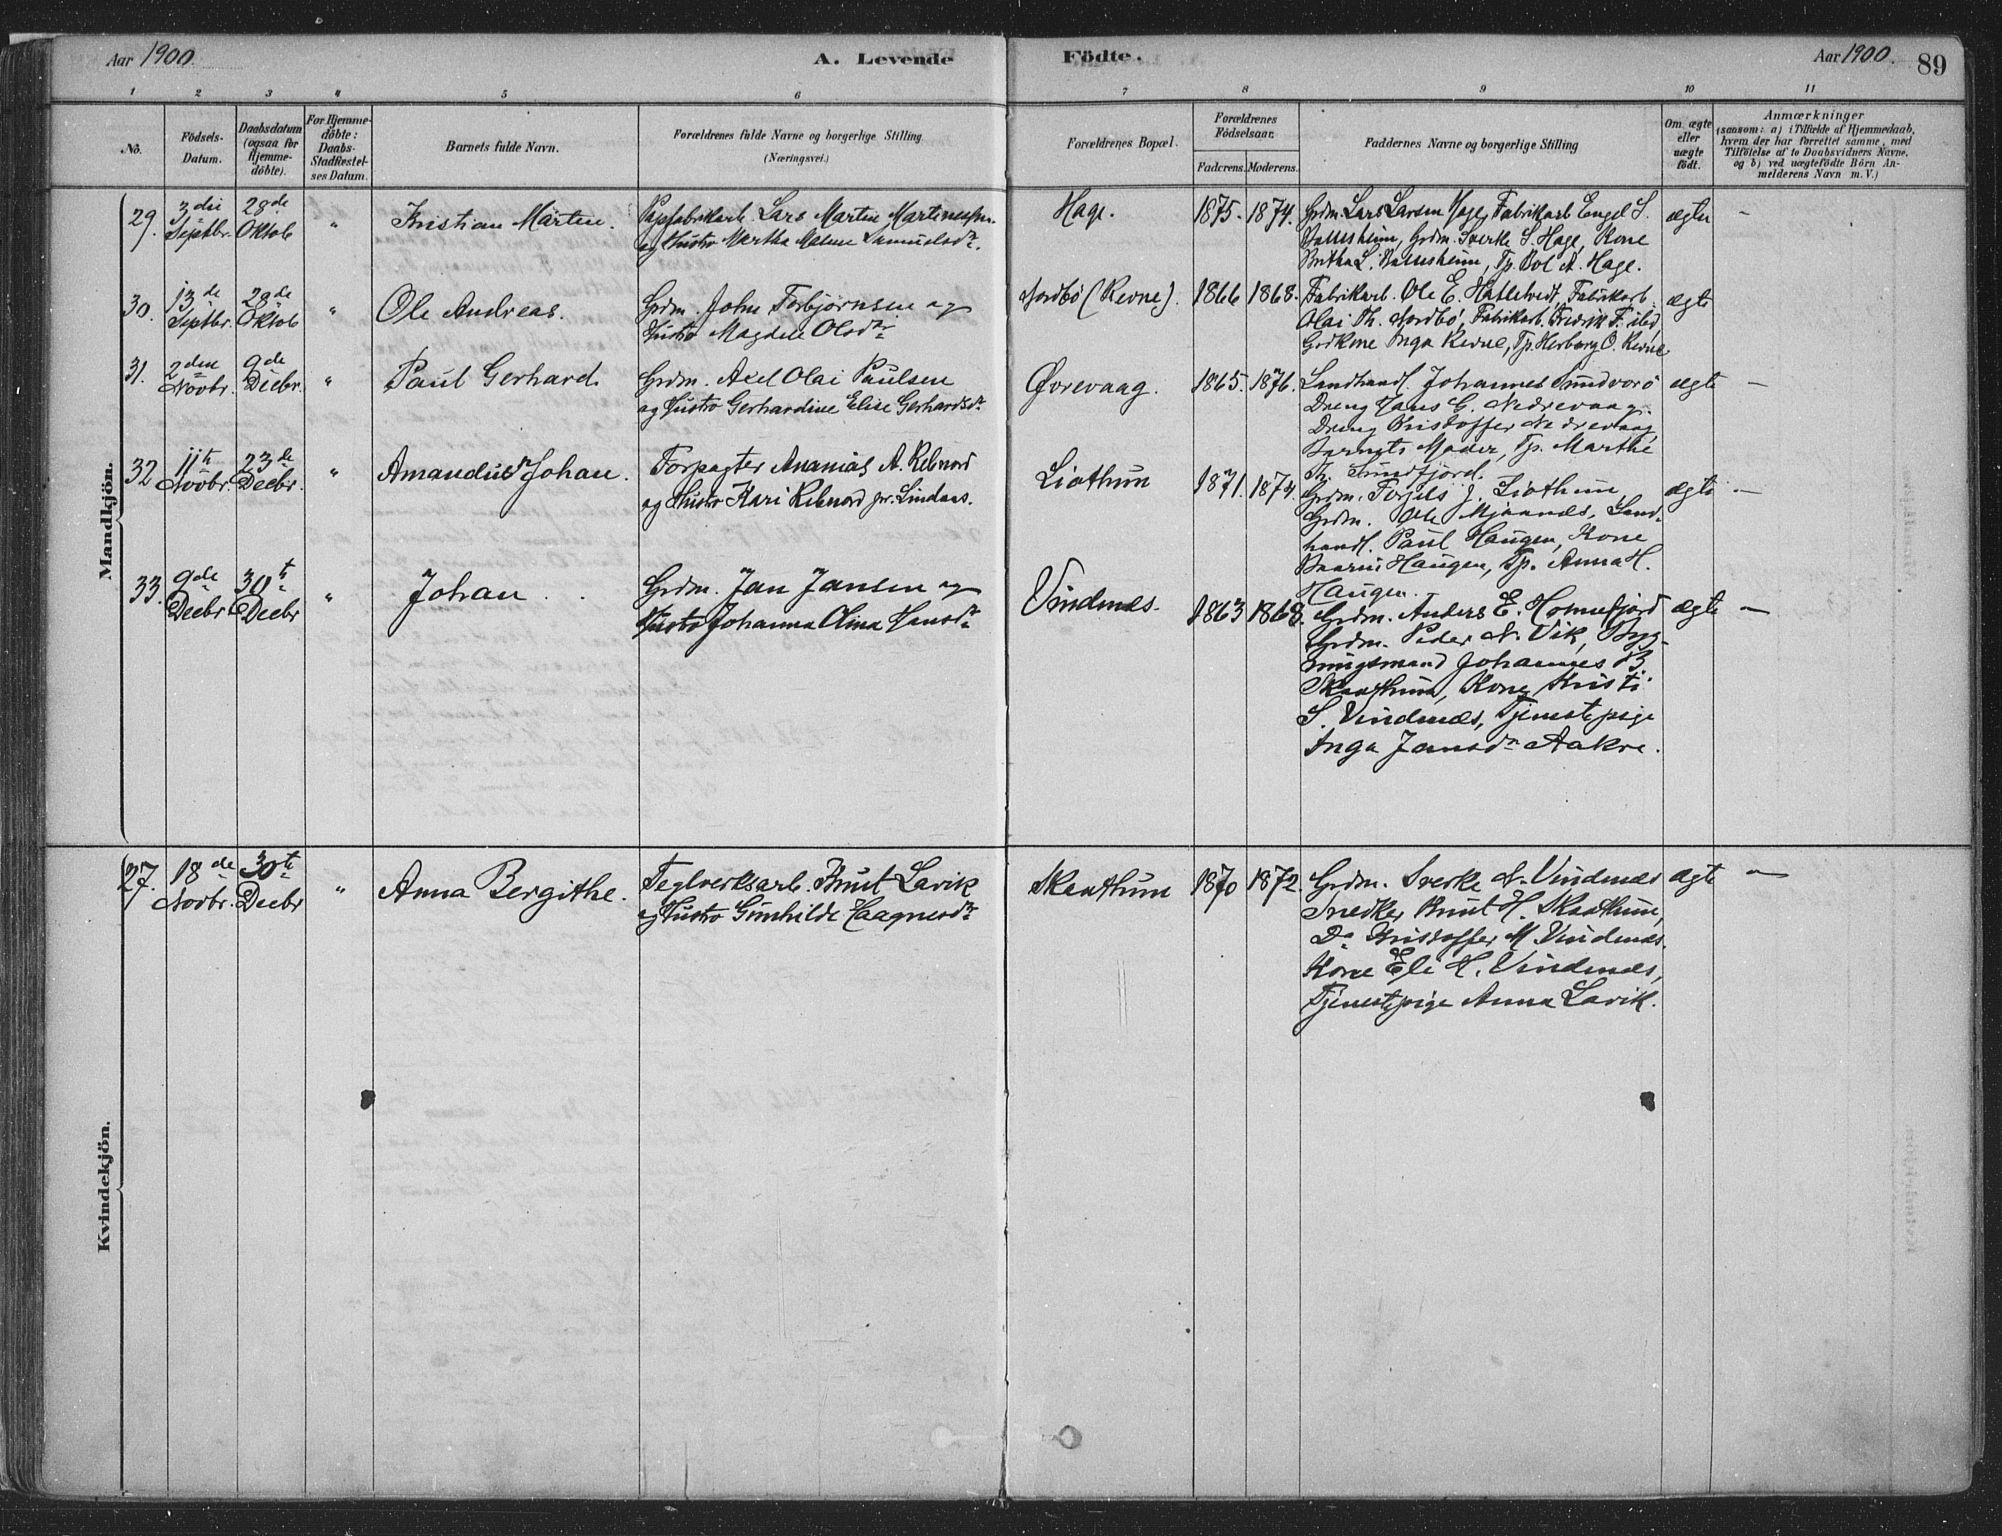 Aar 1900.
A. Levende Födte.
Aar 1900.
89
1 2 3 4 5 6 7 8 9 10 11
No.
Födsels-
Datum.
Daabsdatum
(ogsaa for
Hjemme-
döbte).
For Hjemme-
döbte:
Daabs-
Stadfestel-
ses Datum.
Barnets fulde Navn.
Forældrenes fulde Navne og borgerlige Stilling
(Næringsvei.)
Forældrenes Bopæl.
Forældrenes
Födselsaar.
Faderens. Moderens.
Faddernes Navne og borgerlige Stilling
Om ægte
eller
uægte
födt.
Anmærkninger
(saasom: a) i Tilfælde af Hjemmedaab,
hvem der har forrettet samme, med
Tilföielse af to Daabsvidners Navne,
og b) ved uægtefödte Börn An-
melderens Navn m. V.)
Mandkjön.
29.
3die
Septbr.
28de
Oktob
"
Kristian Martin.
Papfabrikarb. Lars Martin Martinussen
og Hustro Martha Malene Samuelsdr.
Hage.
1875. 1874.
Grdm. Lars Larsen Hage, Fabrikarb Engel S.
Valesheim, Grdm. Sverke S. Hage, Kone
Britha L. Valesheim, Tp. Bol A. Hage.
ægte
—
30.
13de
Septbr.
28de
Oktob
"
Ole Andreas.
Grdm. John Torbjørnsen og
Hustro Magdele Olsdr
Nordbö (Revne).
1866 1868.
Fabrikarb. Ole E. Hatletvedt, Fabrikarb.
Olai Th. Nordbö, Fabrikarb. Fredrik F. ibd,
Grdkone Inga Revne, Tp. Herborg O. Revne
ægte
31.
2den
Novbr.
9de
Decbr.
"
Paul Gerhard.
Grdm. Axel Olai Paulsen
og Hustro Gerhardine Elise Gerhardsdr.
Øvrevaag.
1865. 1876.
Landhandl. Johannes Sundvorö
Dreng Hans G. Nedrevaag.
Dreng Kristoffer Nedrevaag,
Barnets Moder, Tp. Marthe
Th. Sundfjord.
ægte
—
32
11te
Novbr.
23de
Decbr.
"
Amandus Johan.
Forpagter Ananias A. Rebnord
og Hustro Kari Rebnord pr. Lindaas.
Liothun
1871. 1874.
Grdm. Terjels J. Liothun,
Grdm. Ole Mjaanæs, Land-
handl. Paul Haugen, Kone
Haugen, Tp. Anna H.
Haugen.
ægte
—
33.
9de
Decbr
30te
Decbr
"
Johan
Grdm. Jan Jansen og
Hustro Johanna Olina Hansdr
Vindenæs.
1863 1868.
Grdm. Anders E. Holmefjord
Grdm. Peder N. Vik, Byg-
ningsmand Johannes B.
Skaathun, Kone Kristi
S. Vindenæs, Tjenestepige
Inga Jansdr Aakre.
ægte
—
Kvindekjön.
27.
18de
Novbr.
30te
Decbr
"
Anna Bergithe.
Teglverksarb. Knut Lavik
og Hustro Gunhilde Haagnesdr
Skaathun
1870 1872.
Grdm. Sverke N. Vindenæs
Snedker Knut H. Skaathun,
Do Kristoffer M Vindenæs.
Kone Eli H. Vindenæs,
Tjenestepige Anna Lavik.
ægte
—